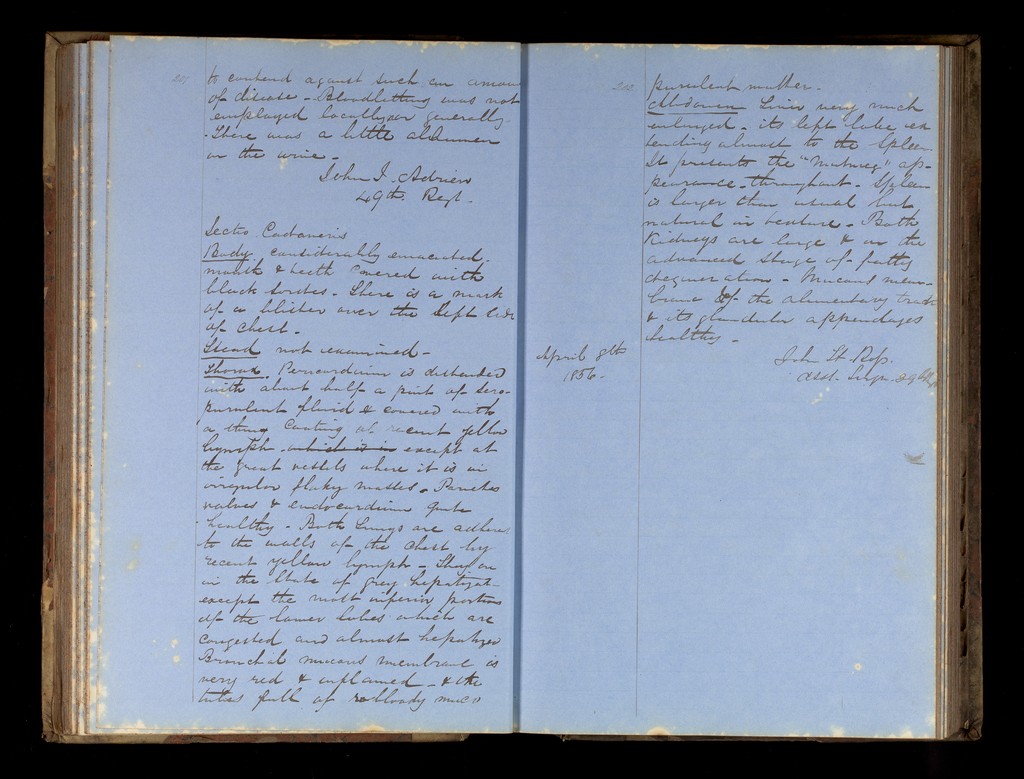 to contend against such an amount
of disease - Bloodletting was not
employed locally or generally.
There was a little albumen
in the urine -
John I. Adrien
49th Regt.
Sectio Cadaveris
Body considerably emaciated.
mouth & teeth covered with
black sordes - There is a mark
of a blister over the left side
of chest -
Head not examined -
Thorax. Pericardium is distended
with about half a pint of sero-
purulent fluid & covered with
a thing coating of recent yellow
lymph which is in except at
the great vessels where it is in
irregular flaky masses - Parietes
valves & endocardium quite
healthy - Both Lungs are adherent
to the walls of the chest by
recent yellow lymph - They are
in the state of grey hepatizat-
except the most inferior portions
of the lower lobes which are
congested and almost hepatized
Bronchal mucous membrane is
very red & inflamed - & the
tubes full of bloody muco
purulent matter.
Abdomen Liver very much
enlarged - its left lobe ex
tending almost to the Spleen
It presents the "Nutmeg" ap-
pearance throughout - Spleen
is larger than usual but
natural in texture - Both
Kidneys are large & in the
advanced stage of fatty
degeneration - Mucous mem-
brane of the alimentary tract
& its glandular appendages
healthy -
April 8th
1856 -
John St. Ross.
Asst. Surgn